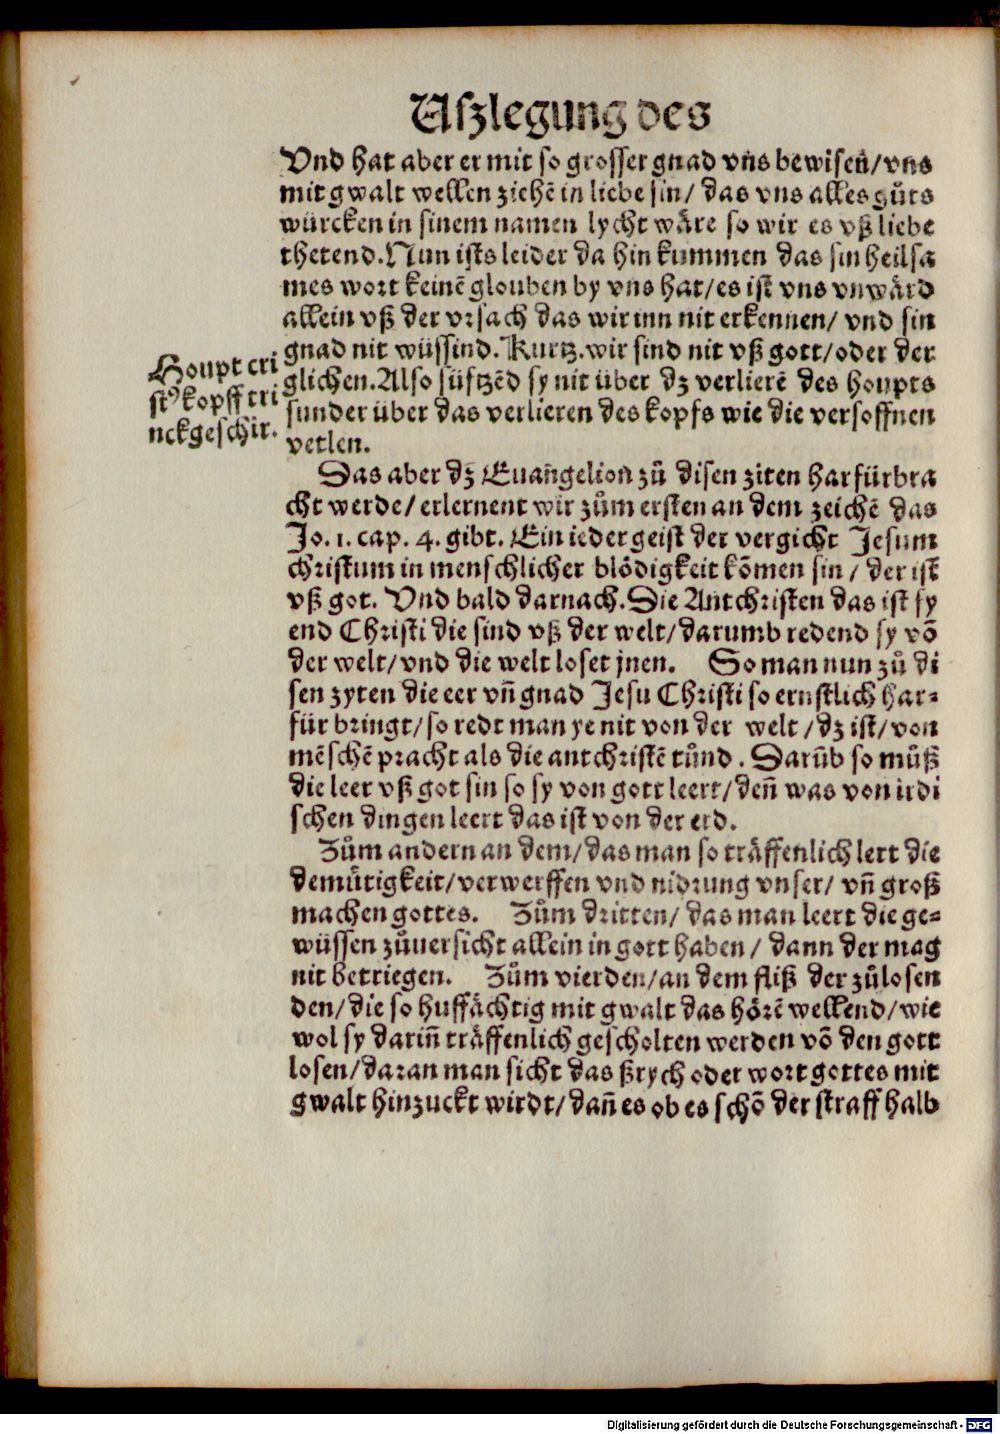 Uszlegung des
Vnd hat aber er mit so grosser gnad vns bewisen/ vns
mit gwalt wellen ziehē in liebe sin/ das vns alles gůts
würcken in sinem namen lycht wäre so wir es vß liebe
thetend. Nun ists leider da hin kummen das sin heilsa
mes wort keinē glouben by vns hat/ es ist vns vnwärd
allein vß der vrsach das wir inn nit erkennen/ vnd sin
gnad nit wüssind. Kurtz. wir sind nit vß gott/ oder der
glichen. Also süftzēd sy nit über dz verlierē des houpts
sunder über das verlieren des kopfs wie die versoffnen
vetlen.
Houpt cri
stꝰ kopff tri
nckgeschir.
Das aber dz Euañgelion zů disen ziten harfürbra
cht werde/ erlernent wir zům ersten an dem zeichē das
Jo. 1. cap. 4. gibt. Ein ieder geist der vergicht Jesum
christum in menschlicher blödigkeit kōmen sin/ der ist
vß got. Vnd bald darnach. Die Antchristen das ist fy
end Christi die sind vß der welt/ darumb redend sy vō
der welt/ vnd die welt loset jnen. So man nun zů di
sen zyten die eer vñ gnad Jesu Christi so ernstlich har⸗
für bringt/ so redt man ye nit von der welt/ dz ist/ von
mēschē pracht als die antchristē tůnd. Darūb so můß
die leer vß got sin so sy von gott leert/ deñ was von irdi
schen dingen leert das ist von der erd.
Zům andern an dem/ das man so träffenlich lert die
demůtigkeit/ verwerffen vnd nidrung vnser/ vñ groß
machen gottes. Zům dritten/ das man leert die ge⸗
wüssen zůuersicht allein in gott haben/ dann der mag
nit betriegen. Zům vierden/ an dem fliß der zůlosen
den/ die so huffächtig mit gwalt das hörē wellend/ wie
wol sy dariñ träffenlich gescholten werden vō den gott
losen/ daran man sicht das ßrych oder wort gottes mit
gwalt hinzuckt wirdt/ dañ es ob es schō der straff halb
Digitalisierung gefördert durch die Deutsche Forschungsgemeinschaft - DFG